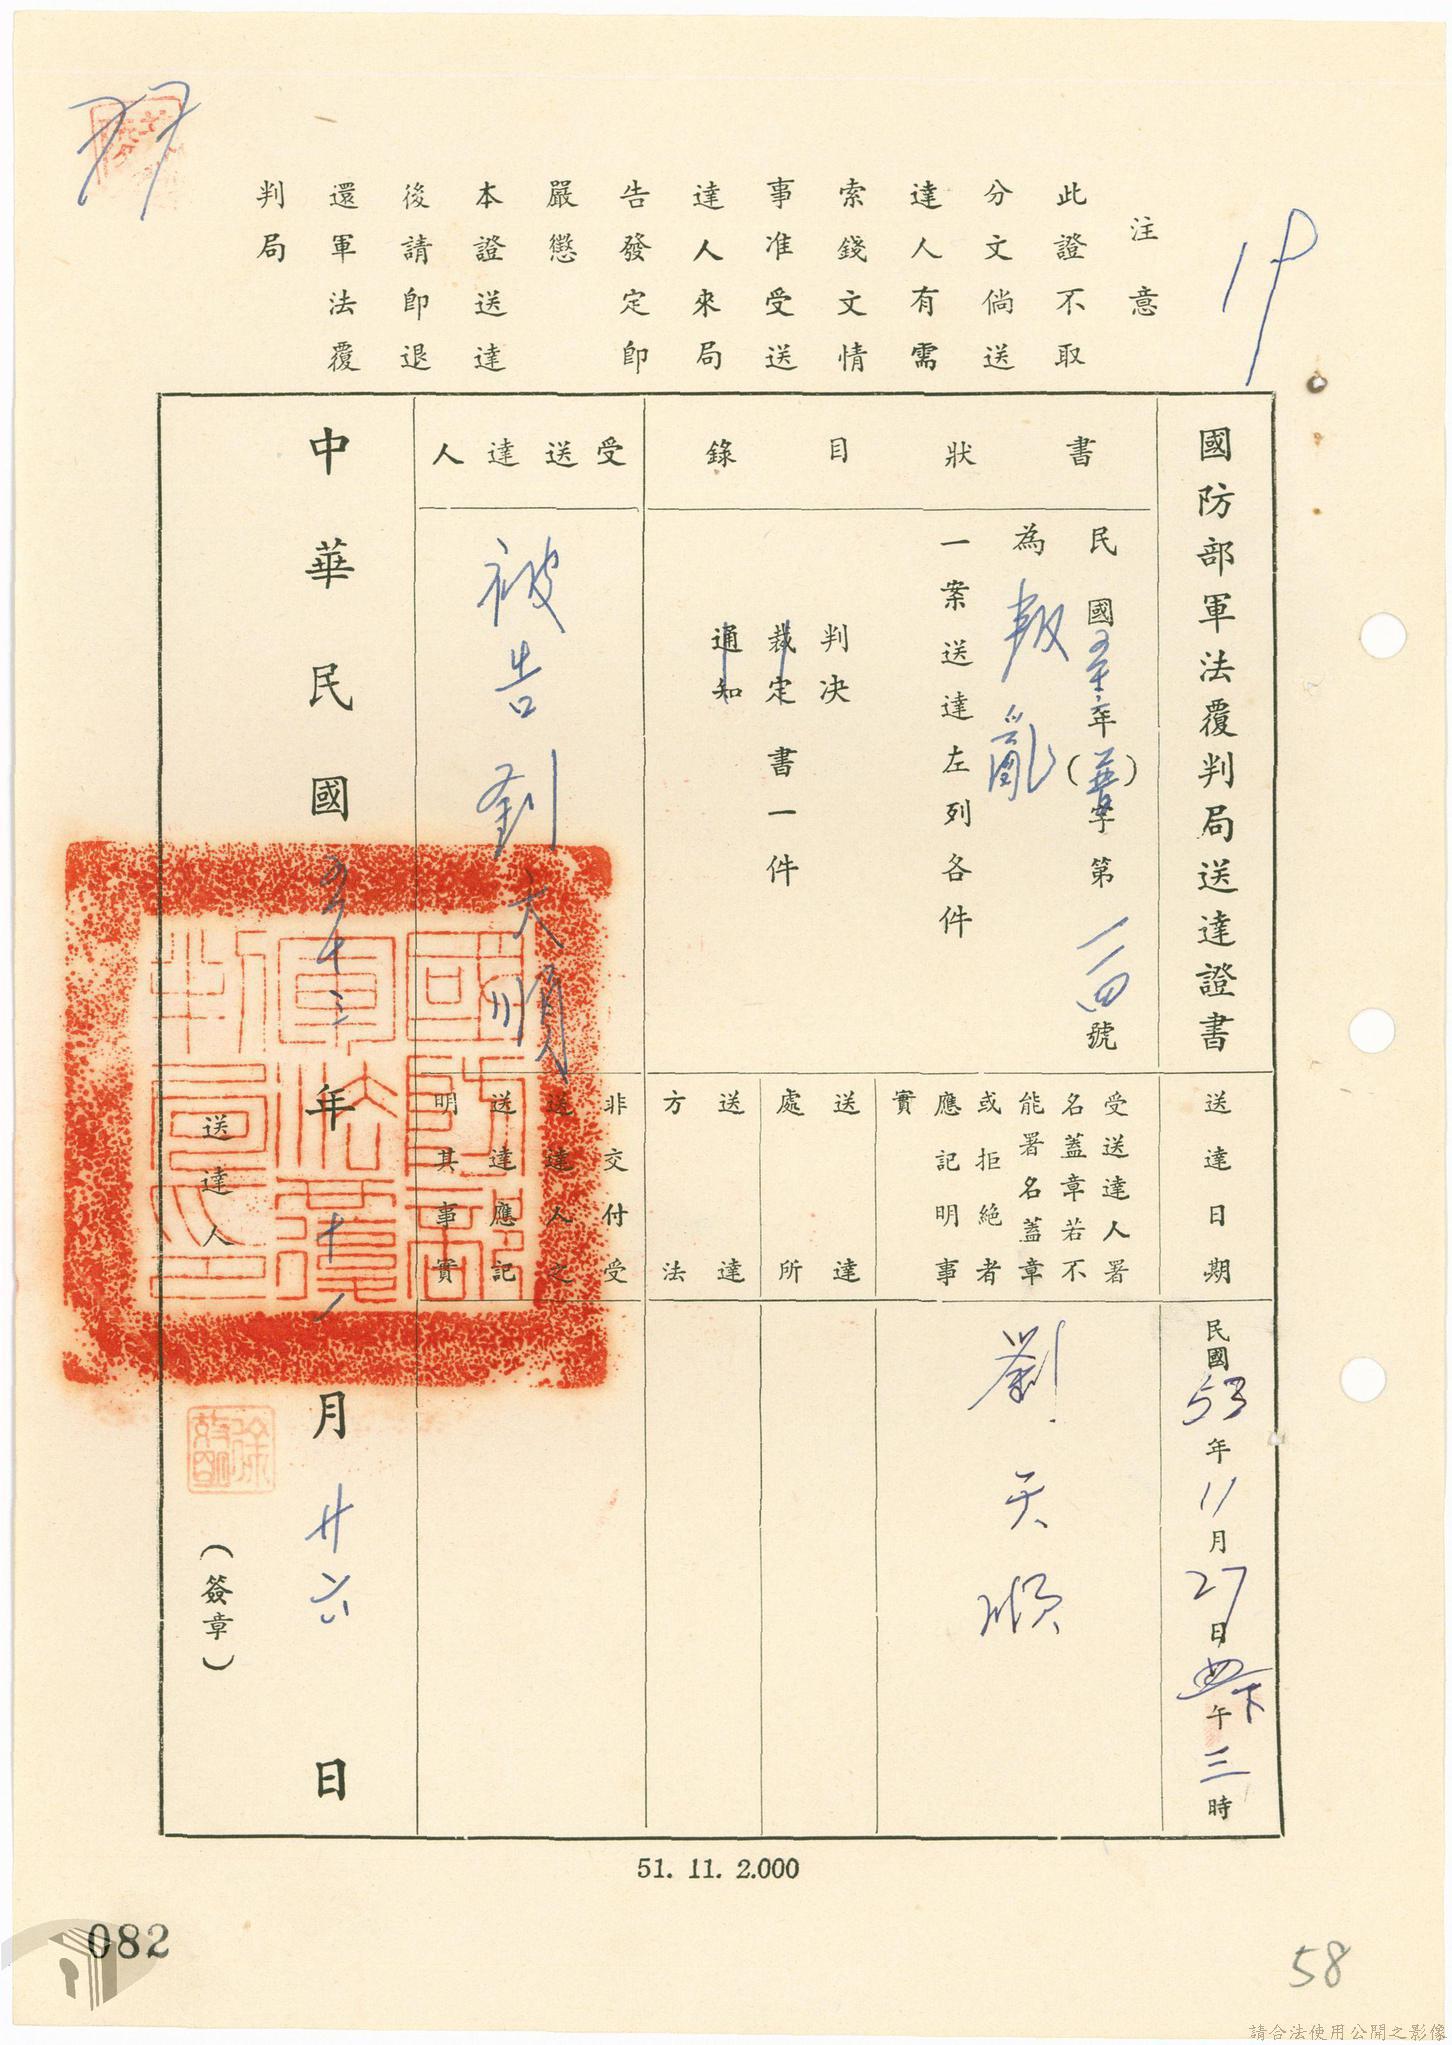 注意
此證不取
分文倘送
達人有需
索錢文情
事准受送
達人來局
告發定即
嚴懲
本證送達
後請即退
還軍法覆
判局
國防部軍法覆判局送達證書
書狀目錄
民國年()字第一一四號
為叛亂
一案送達左列各件
判決
裁定書一件
通知
受送達人
被告劉天順
中華民國五十三年十一月廿六日
送達人
(簽章)
送達日期
民國53年11月27日下午三時
受送達人署
名蓋章若不
能署名蓋章
或拒絕者
應記明事
實
劉天順
送達
處所
送達
方法
非交付受
送達人之
送達應記
明其事實
國防部軍法覆判局印
51. 11. 2.000
082
58
請合法使用公開之影像